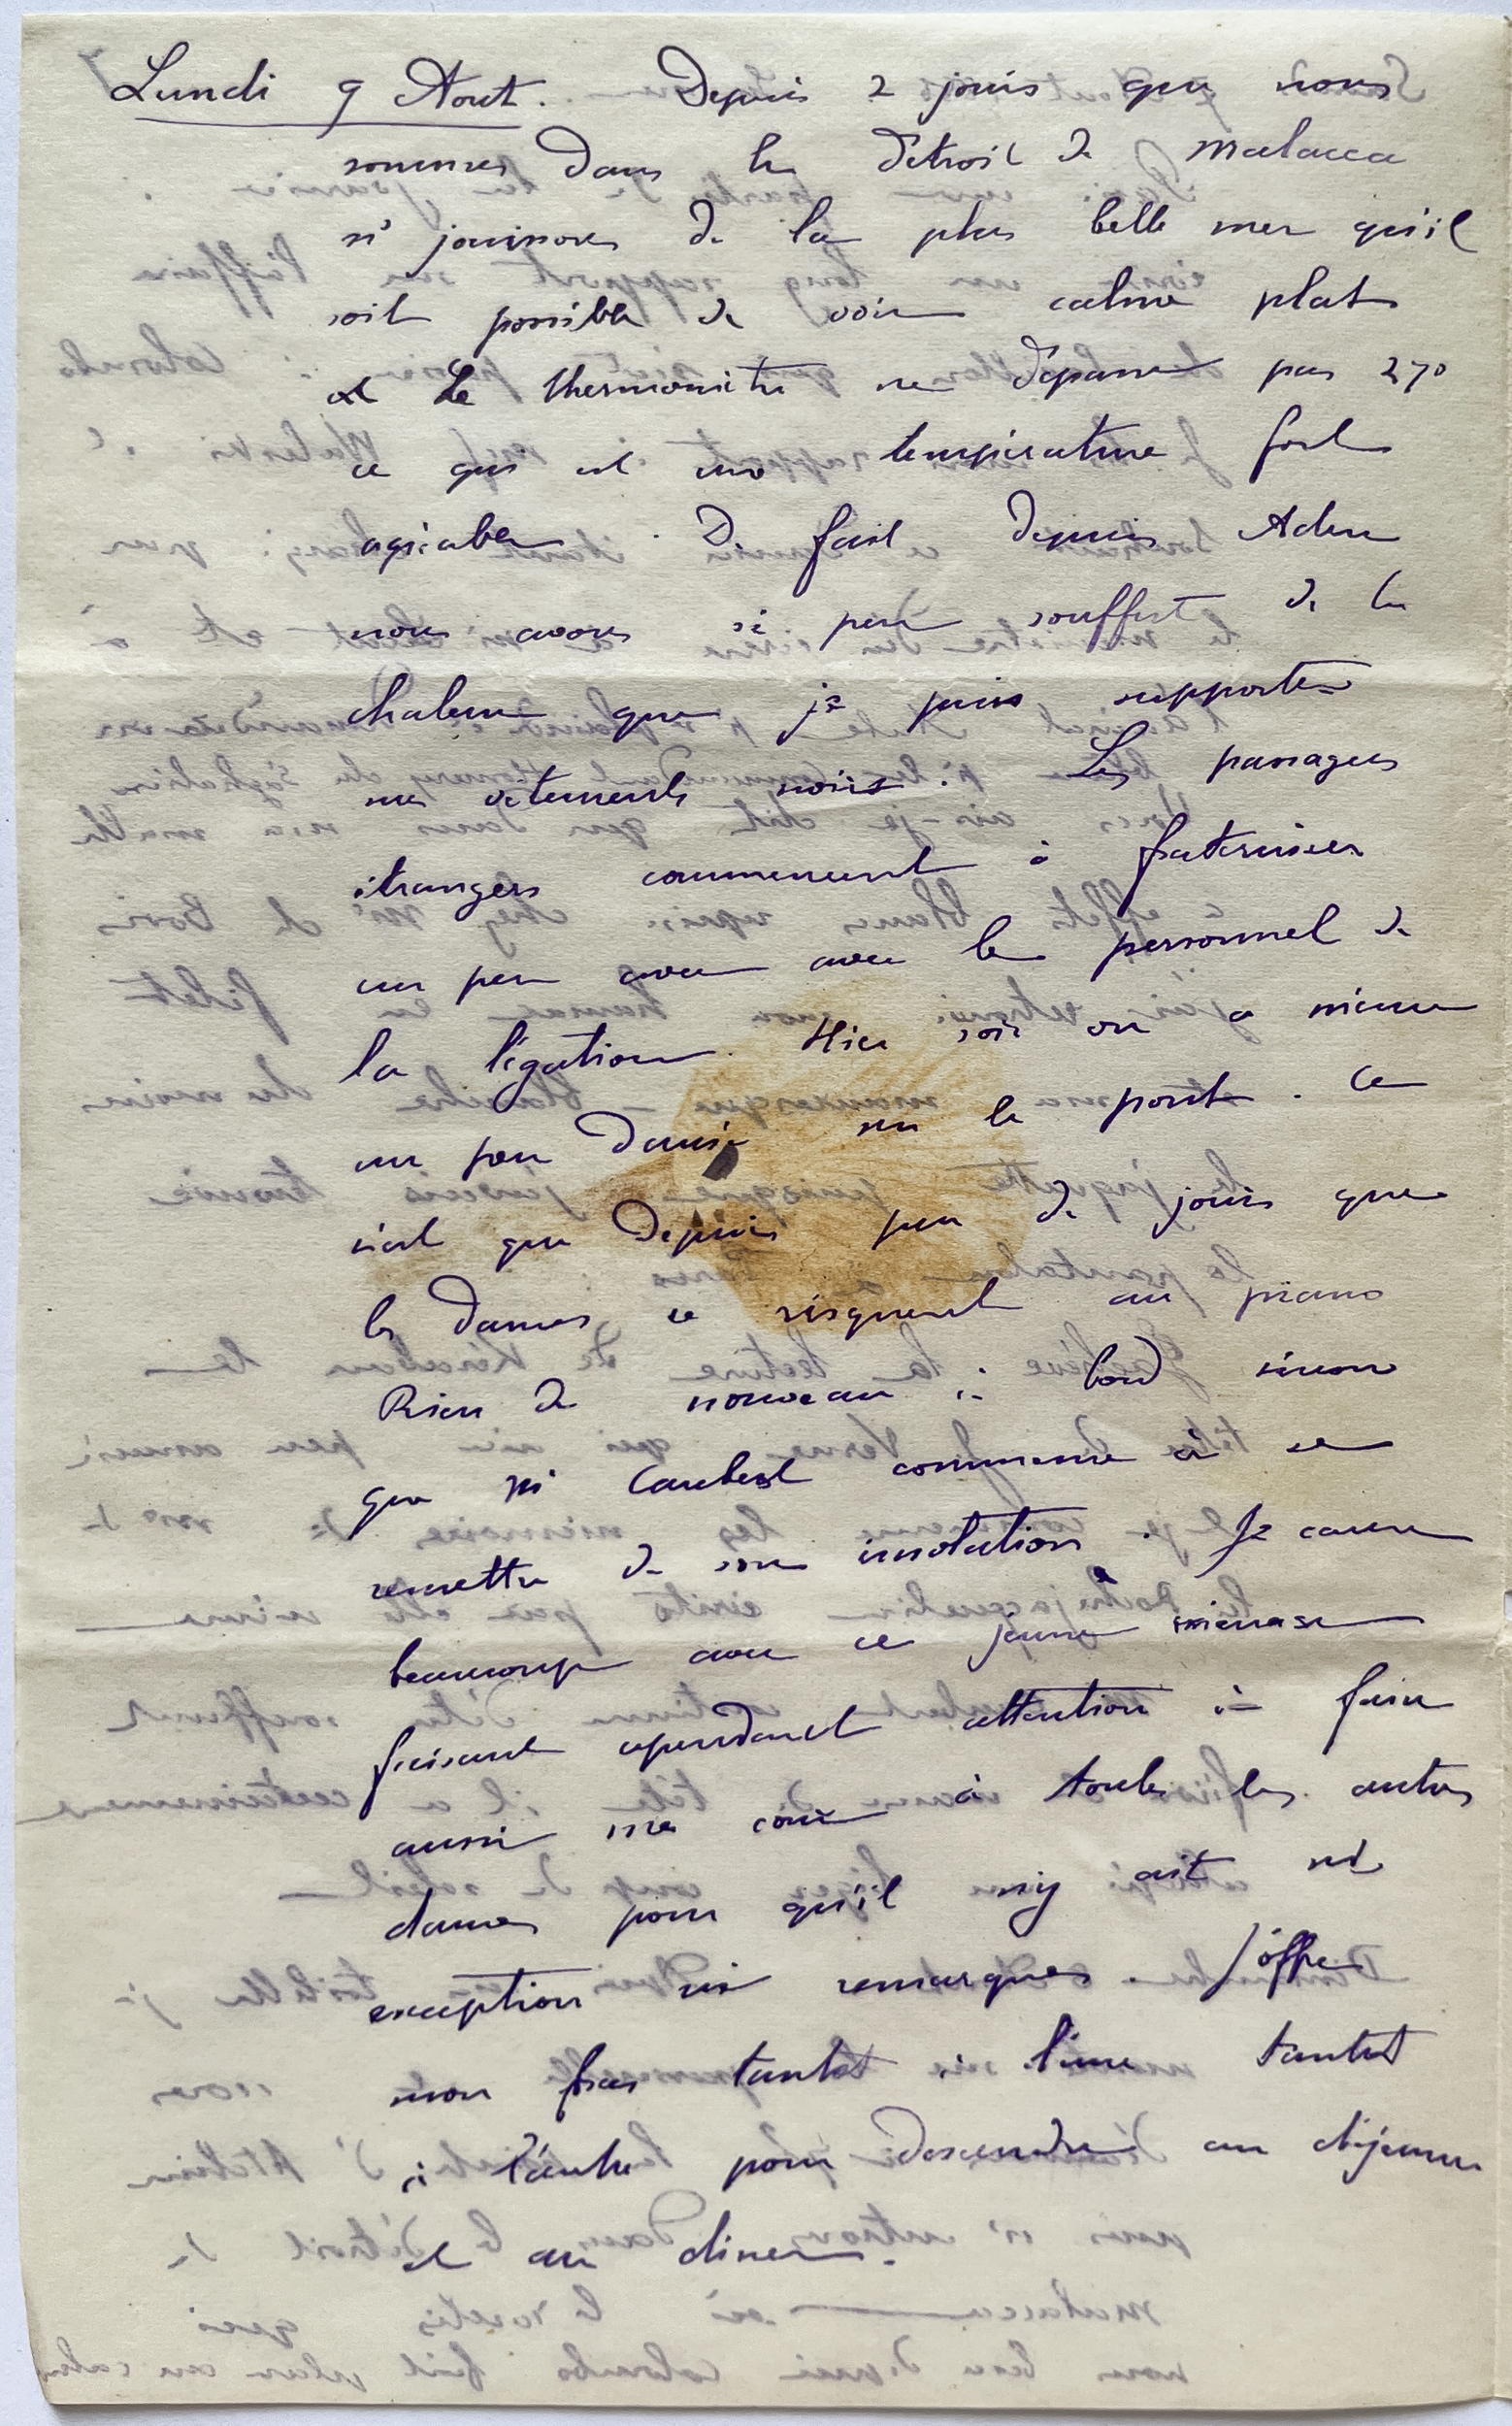 Lundi 9 Aout. Depuis 2 jours que nous
sommes dans le détroit de Malacca
ns jouissons de la plus belle mer qu'il
soit possible de voir calme plat
et le thermomètre ne dépasse pas 27°
ce qui est une température fort
agréable. De fait depuis Aden
nous avons si peu souffert de la
chaleur que je puis supporter
mes vêtements noirs. Les passagers
étrangers commencent à fraterniser
un peu avec avec le personnel de
la légation. Hier soir on a même
un peu dansé sur le pont. Ce
n'est que depuis peu de jours que
les dames se risquent au piano
Rien de nouveau à bord sinon
que Mr Caubest commence à se
remettre de son insolation. Je cause
beaucoup avec ce jeune
faisant cependant attention à faire
aussi ma cour à toutes les autres
dames pour qu'il n'y ait ni
exception ni remarques J'offre
mon bras tantôt à l'une tantôt
à l'autre pour descendre au déjeuner
et au diner.